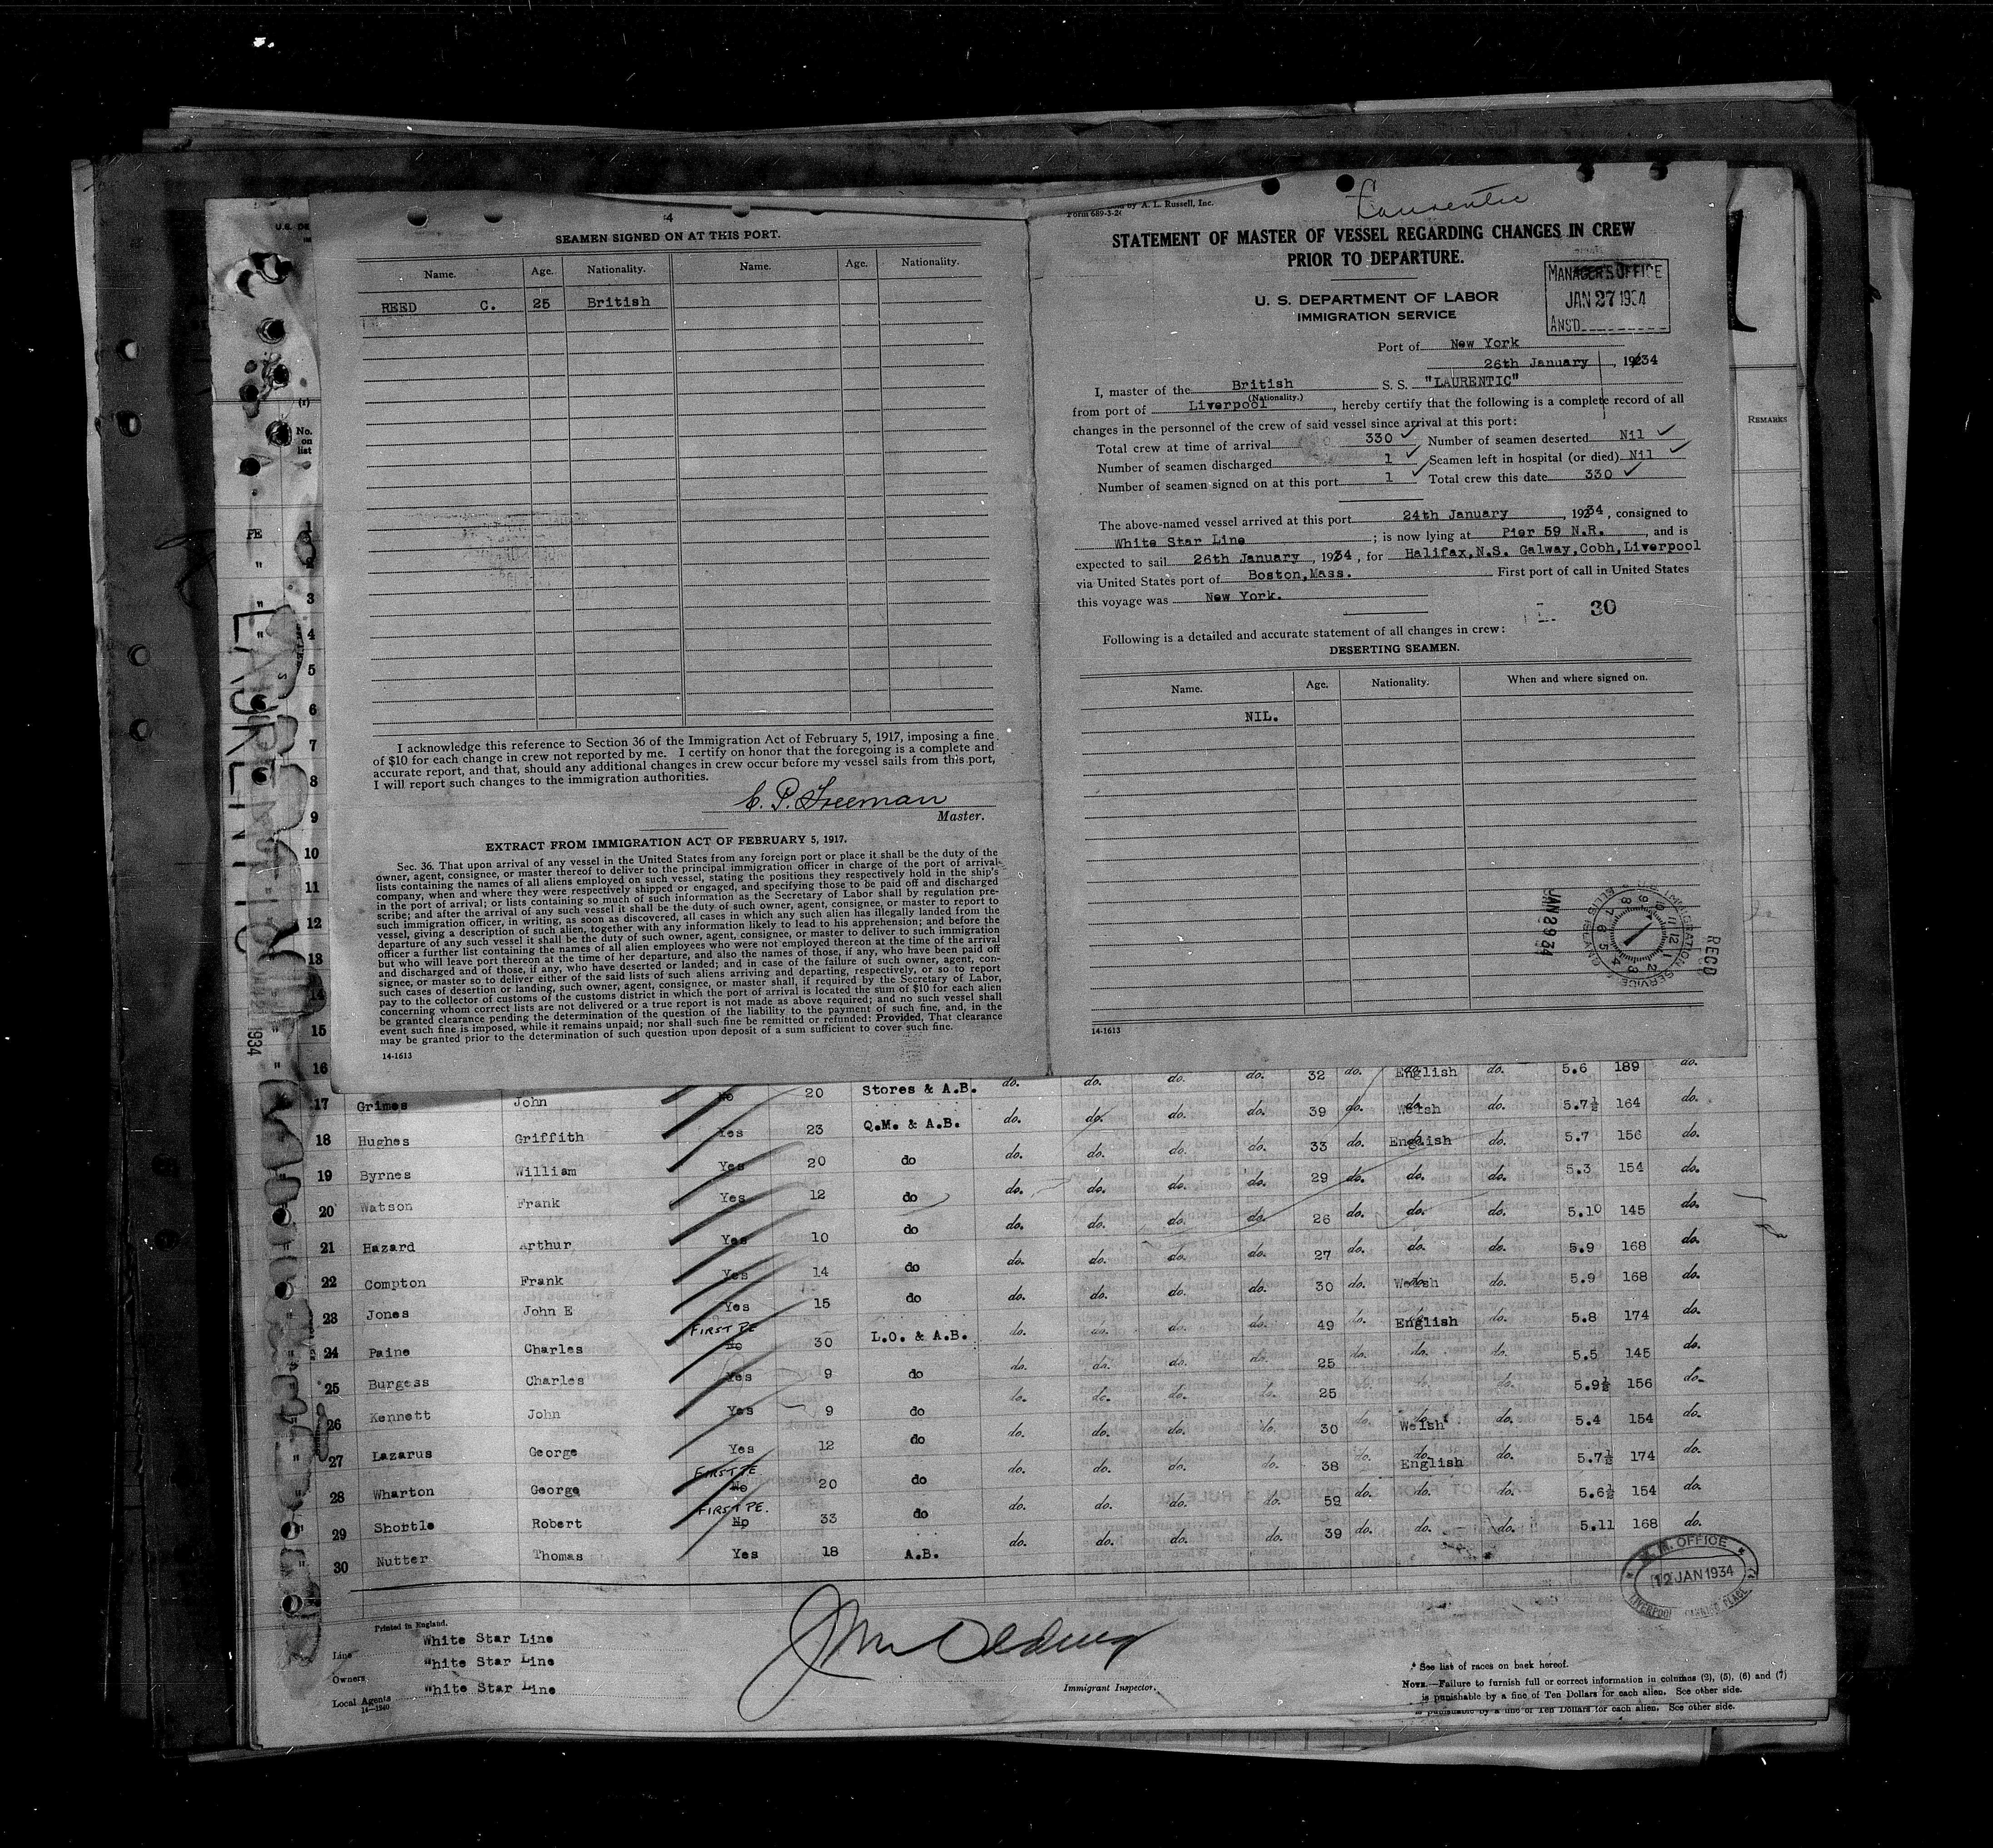 4
SEAMEN SIGNED ON AT THIS PORT.
Name. Age. Nationality. Name. Age. Nationality.
REED C. 25 British
I acknowledge this reference to Section 36 of the Immigration Act of February 5, 1917, imposing a fine
of $10 for each change in crew not reported by me. I certify on honor that the foregoing is a complete and
accurate report, and that, should any additional changes in crew occur before my vessel sails from this port,
I will report such changes to the immigration authorities.
C. P. Freeman
Master.
EXTRACT FROM IMMIGRATION ACT OF FEBRUARY 5, 1917.
Sec. 36. That upon arrival of any vessel in the United States from any foreign port or place it shall be the duty of the
owner, agent, consignee, or master thereof to deliver to the principal immigration officer in charge of the port of arrival
lists containing the names of all aliens employed on such vessel, stating the positions they respectively hold in the ship's
company, when and where they were respectively shipped or engaged, and specifying those to be paid off and discharged
in the port of arrival; or lists containing so much of such information as the Secretary of Labor shall by regulation pre-
scribe; and after the arrival of any such vessel it shall be the duty of such owner, agent, consignee, or master to report to
such immigration officer, in writing, as soon as discovered, all cases in which any such alien has illegally landed from the
vessel, giving a description of such alien, together with any information likely to lead to his apprehension; and before the
departure of any such vessel it shall be the duty of such owner, agent, consignee, or master to deliver to such immigration
officer a further list containing the names of all alien employees who were not employed thereon at the time of the arrival
but who will leave port thereon at the time of her departure, and also the names of those, if any, who have been paid off
and discharged and of those, if any, who have deserted or landed; and in case of the failure of such owner, agent, con-
signee, or master so to deliver either of the said lists of such aliens arriving and departing, respectively, or so to report
such cases of desertion or landing, such owner, agent, consignee, or master shall, if required by the Secretary of Labor,
pay to the collector of customs of the customs district in which the port of arrival is located the sum of $10 for each alien
concerning whom correct lists are not delivered or a true report is not made as above required; and no such vessel shall
be granted clearance pending the determination of the question of the liability to the payment of such fine, and, in the
event such fine is imposed, while it remains unpaid; nor shall such fine be remitted or refunded: Provided, That clearance
may be granted prior to the determination of such question upon deposit of a sum sufficient to cover such fine.
14-1613
by A. L. Russell, Inc.
Form 689-3-26
Laurentic
STATEMENT OF MASTER OF VESSEL REGARDING CHANGES IN CREW
PRIOR TO DEPARTURE.
MANAGER'S OFFICE
JAN 27 1934
ANS'D
U. S. DEPARTMENT OF LABOR
IMMIGRATION SERVICE
Port of New York
26th January, 19234
I, master of the British S. S. "LAURENTIC"
(Nationality.)
from port of Liverpool, hereby certify that the following is a complete record of all
changes in the personnel of the crew of said vessel since arrival at this port:
Total crew at time of arrival 330 ✓ Number of seamen deserted Nil ✓
Number of seamen discharged 1 ✓ Seamen left in hospital (or died) Nil ✓
Number of seamen signed on at this port 1 ✓ Total crew this date 330 ✓
The above-named vessel arrived at this port 24th January, 19234, consigned to
White Star Line; is now lying at Pier 59 N.R., and is
expected to sail 26th January, 19234, for Halifax,N.S. Galway,Cobh,Liverpool
via United States port of Boston,Mass. First port of call in United States
this voyage was New York.
30
Following is a detailed and accurate statement of all changes in crew:
DESERTING SEAMEN.
Name. Age. Nationality. When and where signed on.
NIL.
RECD
U.S. IMMIGRATION SERVICE
ELLIS ISLAND
JAN 29 34
14-1613
REMARKS
LAURENTIC
1934
U.S. DE
(1)
No. on list
PE
1
2
3
4
5
6
7
8
9
10
11
12
13
14
15
16 32 do. English do. 5.6 189 do.
17 Grimes John No 20 Stores & A.B. do. do. do. do. 39 do. Welsh do. 5.7½ 164 do.
18 Hughes Griffith Yes 23 Q.M. & A.B. do. do. do. do. 33 do. English do. 5.7 156 do.
19 Byrnes William Yes 20 do do. do. do. do. 29 do. do. do. 5.3 154 do.
20 Watson Frank Yes 12 do do. do. do. do. 26 do. do. do. 5.10 145 do.
21 Hazard Arthur Yes 10 do do. do. do. do. 27 do. do. do. 5.9 168 do.
22 Compton Frank Yes 14 do do. do. do. do. 30 do. Welsh do. 5.9 168 do.
23 Jones John E Yes 15 do do. do. do. do. 49 do. English do. 5.8 174 do.
24 Paine Charles FIRST PE No 30 L.O. & A.B. do. do. do. do. 25 do. do. do. 5.5 145 do.
25 Burgess Charles Yes 9 do do. do. do. do. 25 do. do. do. 5.9½ 156 do.
26 Kennett John Yes 9 do do. do. do. do. 30 do. Welsh do. 5.4 154 do.
27 Lazarus George Yes 12 do do. do. do. do. 38 do. English do. 5.7½ 174 do.
28 Wharton George FIRST PE No 20 do do. do. do. do. 59 do. do. 5.6½ 154 do.
29 Shottle Robert FIRST PE. No 33 do do. do. do. do. 39 do. do. do. 5.11 168 do.
30 Nutter Thomas Yes 18 A.B.
OFFICE
12 JAN 1934
LIVERPOOL CANNING PLACE
Printed in England.
Line White Star Line
Owners White Star Line
Local Agents White Star Line
14-1240
Immigrant Inspector.
* See list of races on back hereof.
NOTE.—Failure to furnish full or correct information in columns (2), (5), (6) and (7)
is punishable by a fine of Ten Dollars for each alien. See other side.
is punishable by a fine of Ten Dollars for each alien. See other side.